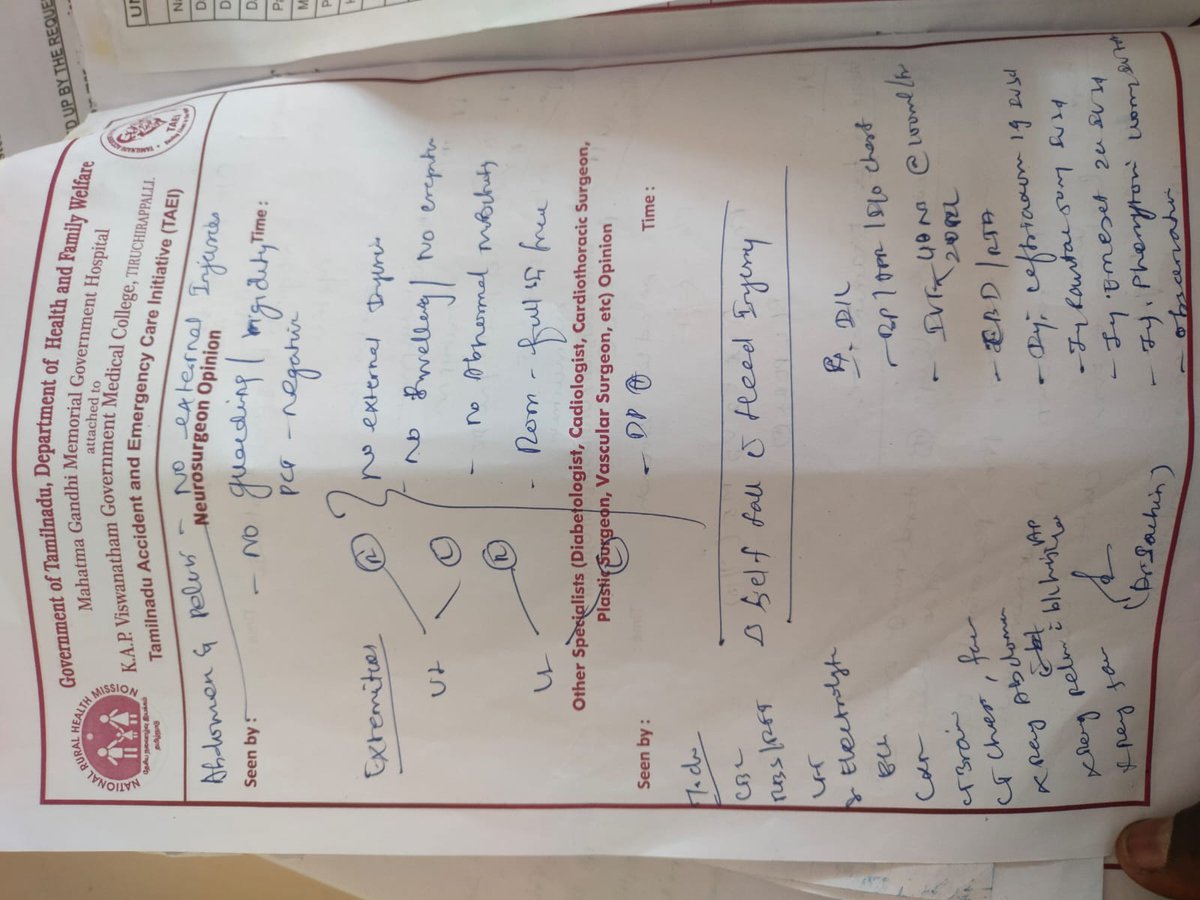 UP BY THE REQUE
Government of Tamilnadu, Department of Health and Family Welfare
Mahatma Gandhi Memorial Government Hospital
attached to
K.A.P. Viswanatham Government Medical College, TIRUCHIRAPPALLI.
Tamilnadu Accident and Emergency Care Initiative (TAEI)
NATIONAL RURAL HEALTH MISSION
TAEI
Abdomen & pelvis - No external Injuries
Neurosurgeon Opinion
Seen by : Time :
- No guarding / rigidity
PCT - negative
Extremities
UL R No external Injuries
L - No swelling / No crepitus
LL R - no Abnormal mobility
L - Rom - full & free
Other Specialists (Diabetologist, Cadiologist, Cardiothoracic Surgeon,
Plastic Surgeon, Vascular Surgeon, etc) Opinion
- DP +
Seen by : Time :
Δ Self fall c̄ Head Injury
To do
CBC
RBS / RFT
LFT
S. Electrolyte
CT Brain
CT Chest, face
X ray Abdomen
X ray pelvis c̄ b/l hip AP
X ray
(Dr. Sachin)
Rx
- IVF NS @ 100ml/hr
RL
- Inj. ceftriaxone 1g
- Inj. Rantac 50mg
- Inj. Emeset
- Inj. Phenytoin 100mg
- observation